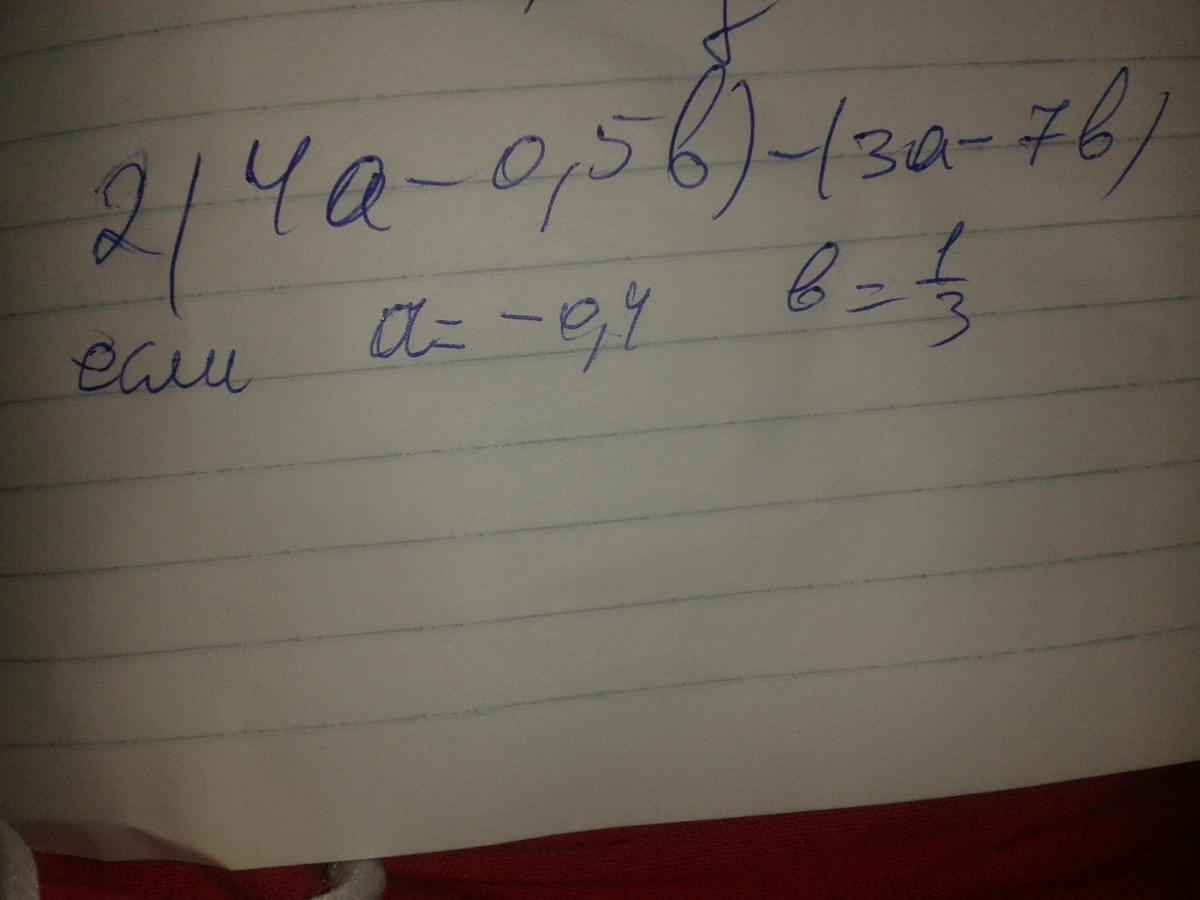 2(4а - 0,5в) - (3а - 7в)
если а = -0,4 в = 1/3